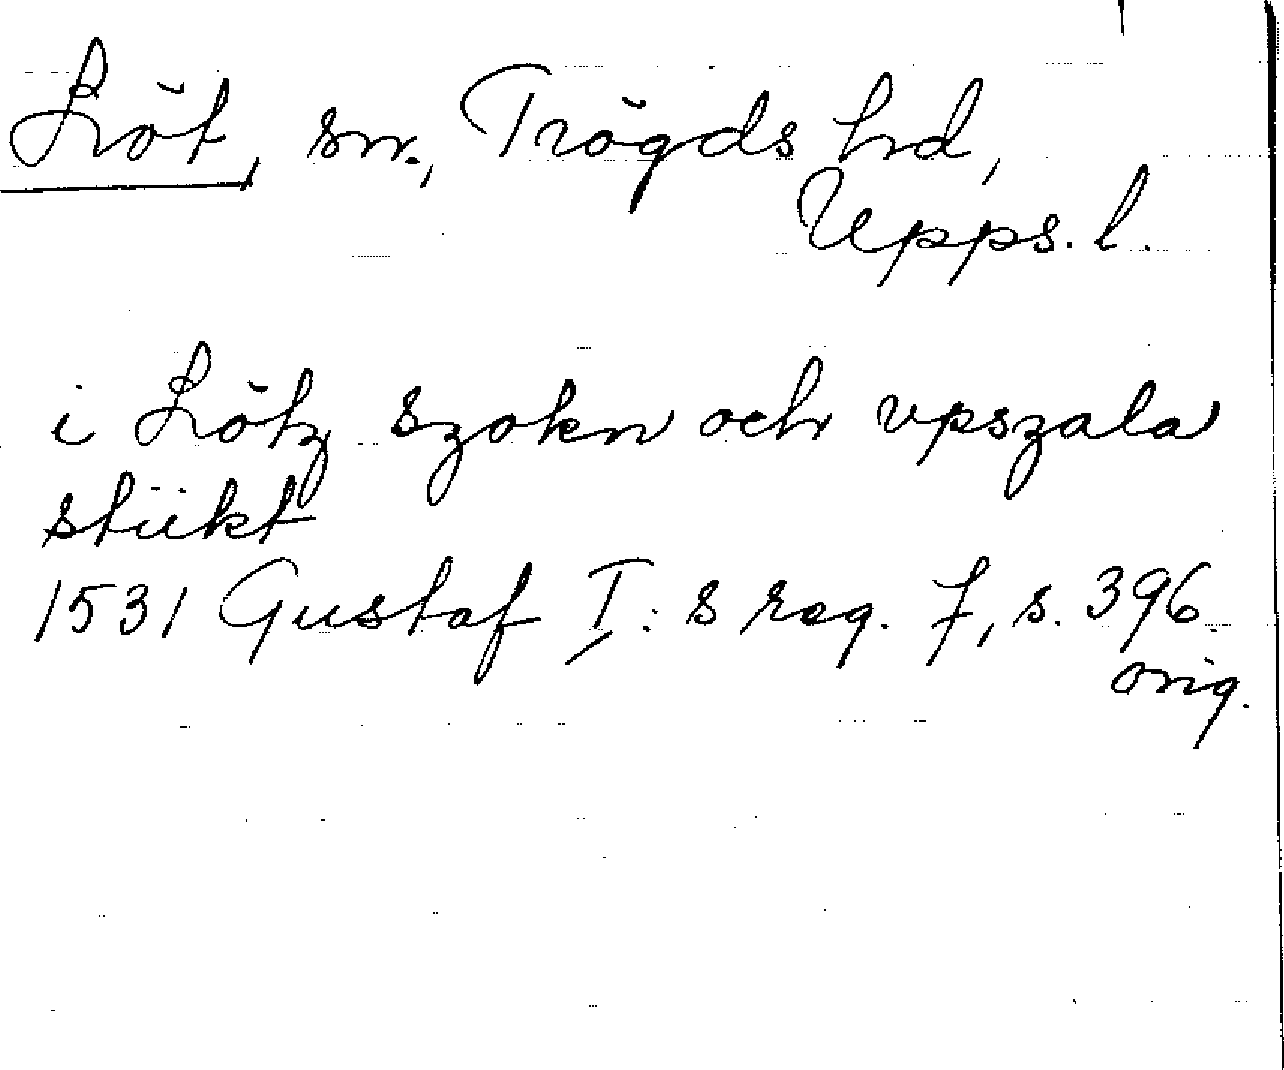 Löt, sn., Trögds hd,
Upps. l.
i Lötz szokn och vpszala
stükt
1531 Gustaf I:s reg. 7, s. 396
orig.